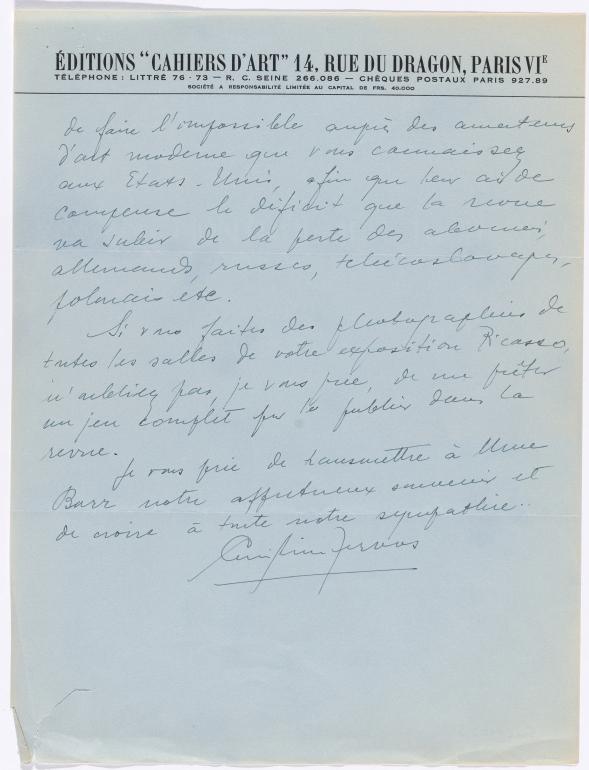 ÉDITIONS "CAHIERS D'ART" 14, RUE DU DRAGON, PARIS VIᴱ
TÉLÉPHONE: LITTRÉ 76-73 — R. C. SEINE 266.086 — CHÈQUES POSTAUX PARIS 927.89
SOCIÉTÉ A RESPONSABILITÉ LIMITÉE AU CAPITAL DE FRS. 40.000
de faire l'impossible auprès des amateurs
d'art moderne que vous connaissez
aux Etats-Unis, afin que leur aide
compense le déficit que la revue
va subir de la perte des abonnés,
allemands, russes, tchécoslovaques,
polonais etc.
Si vous faites des photographies de
toutes les salles de votre exposition Picasso,
n'oubliez pas, je vous prie, de me prêter
un jeu complet pr le publier dans la
revue.
Je vous prie de transmettre à Mme
Barr notre affectueux souvenir et
de croire à toute notre sympathie..
Christian Zervos